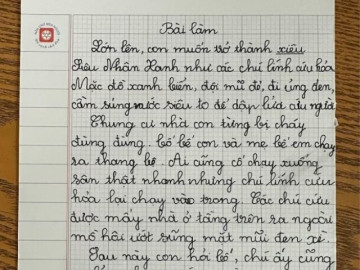 Bài làm
Lớn lên, con muốn trở thành siêu
Siêu Nhân Xanh như các chú lính cứu hỏa
Mặc đồ xanh biển, đội mũ đỏ, đi ủng đen,
cầm súng nước siêu to để dập lửa cứu người
Chung cư nhà con từng bị cháy
đùng đùng. bố bế con và mẹ bế em chạy
ra thang bộ. Ai cũng cố chạy xuống
sân thật nhanh nhưng chú lính cứu
hỏa lại chạy vào trong. Các chú cứu
được mấy nhà ở tầng trên ra ngoài
mồ hôi ướt sũng mặt mũi đen xì.
Sau này con hỏi bố, chú ấy cũng